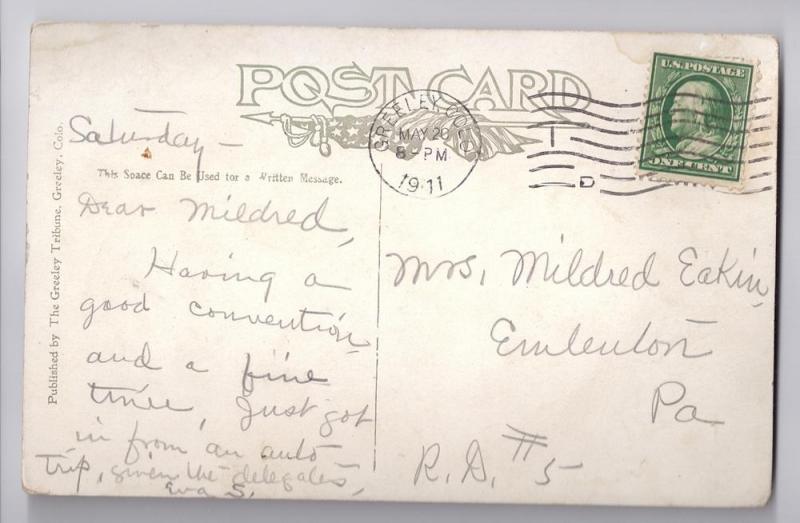 POST CARD
U.S. POSTAGE
ONE CENT
GREELEY, COLO.
MAY 20
8-PM
1911
D
Published by The Greeley Tribune, Greeley, Colo.
Saturday —
This Space Can Be Used for a Written Message.
Dear Mildred,
Having a
good convention
and a fine
time, Just got
in from an auto
trip, given the delegates,
Eva S.
Mrs. Mildred Eakin,
Emlenton
Pa
R.D. #5